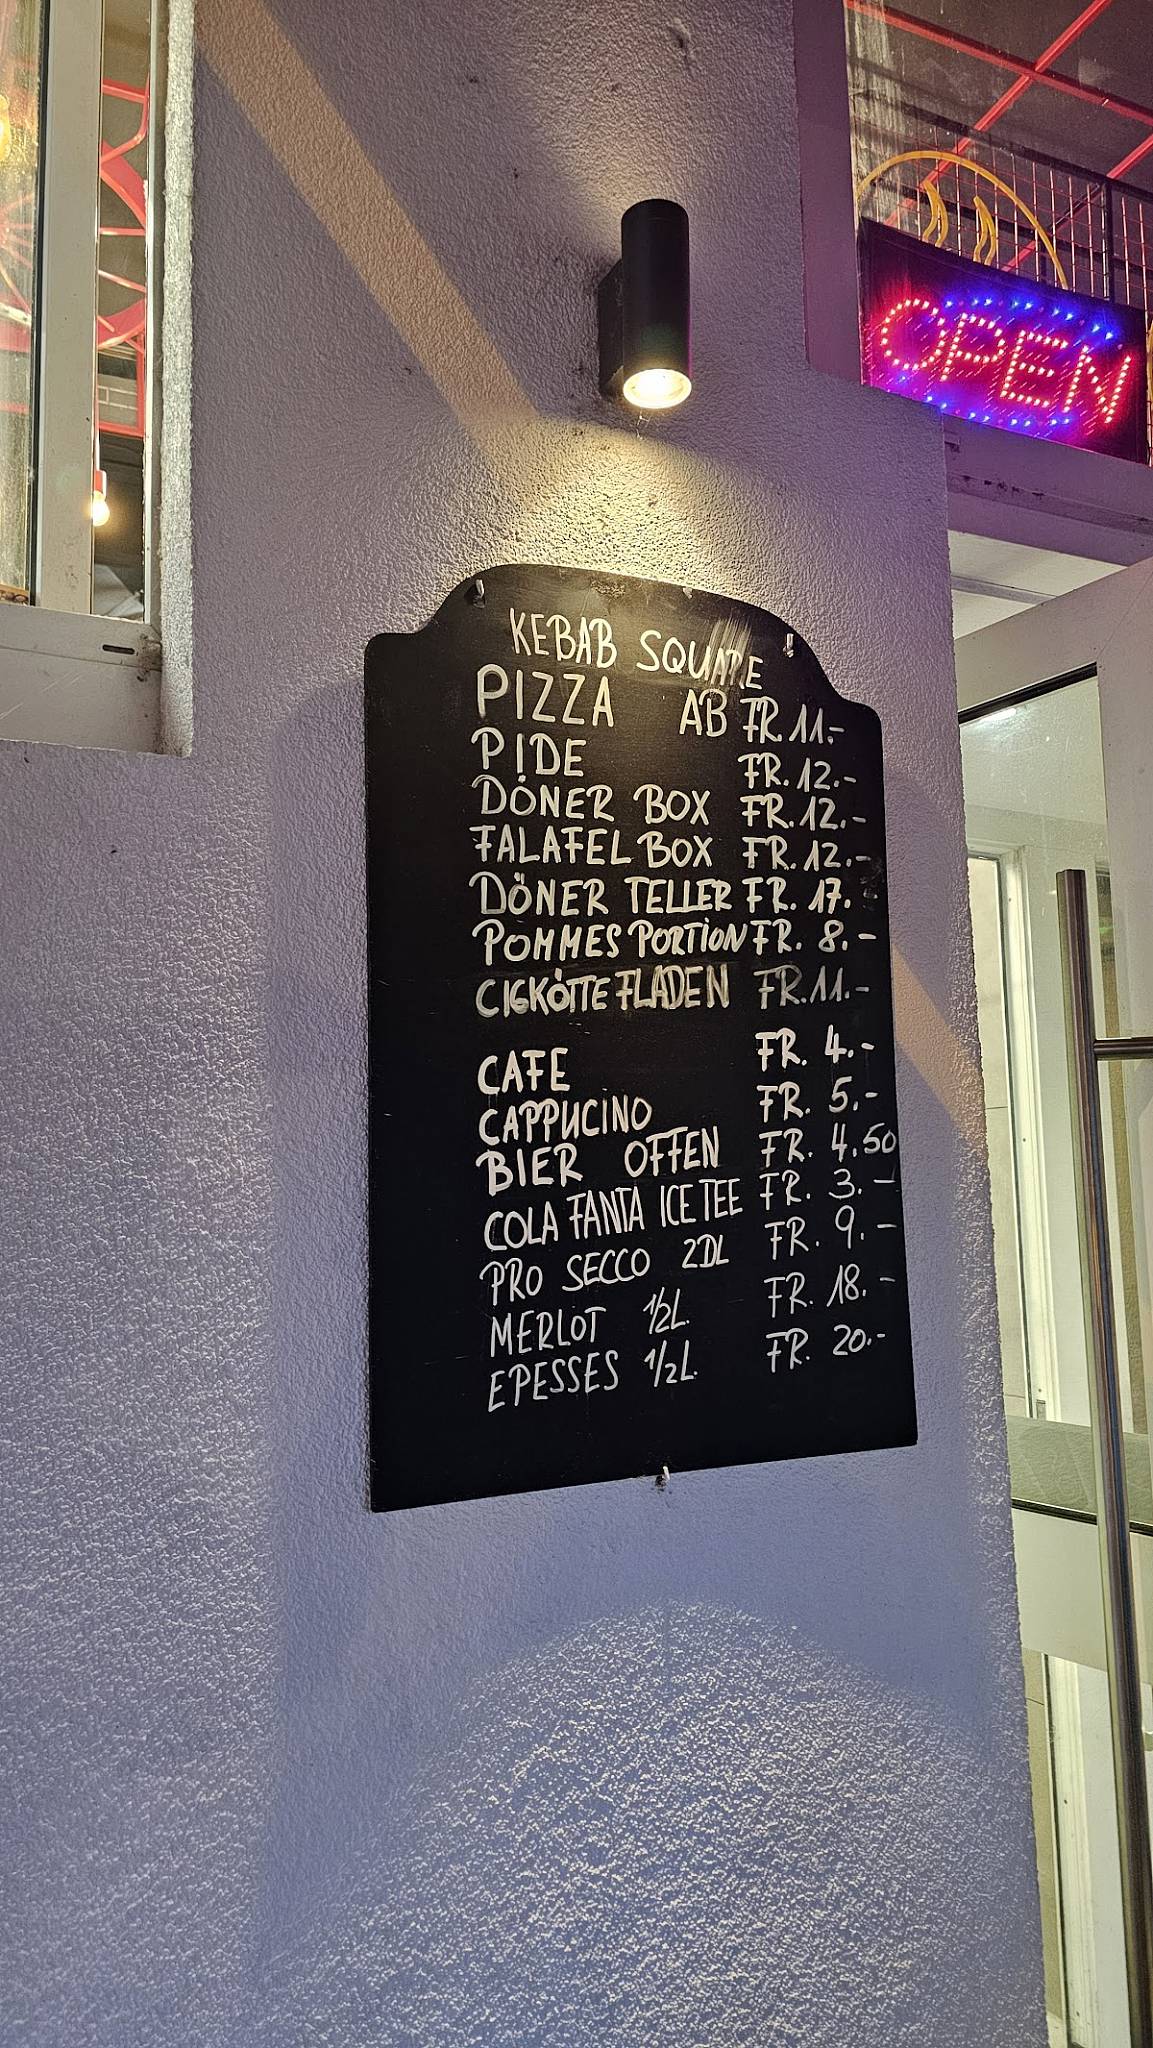 OPEN
KEBAB SQUARE
PIZZA AB FR. 11.-
PIDE FR. 12.-
DÖNER BOX FR. 12.-
FALAFEL BOX FR. 12.-
DÖNER TELLER FR. 17.-
POMMES PORTION FR. 8.-
CIGKÖTTE FLADEN FR. 11.-
CAFE FR. 4.-
CAPPUCINO FR. 5.-
BIER OFFEN FR. 4.50
COLA FANTA ICE TEE FR. 3.-
PRO SECCO 2DL FR. 9.-
MERLOT 1/2L. FR. 18.-
EPESSES 1/2L. FR. 20.-